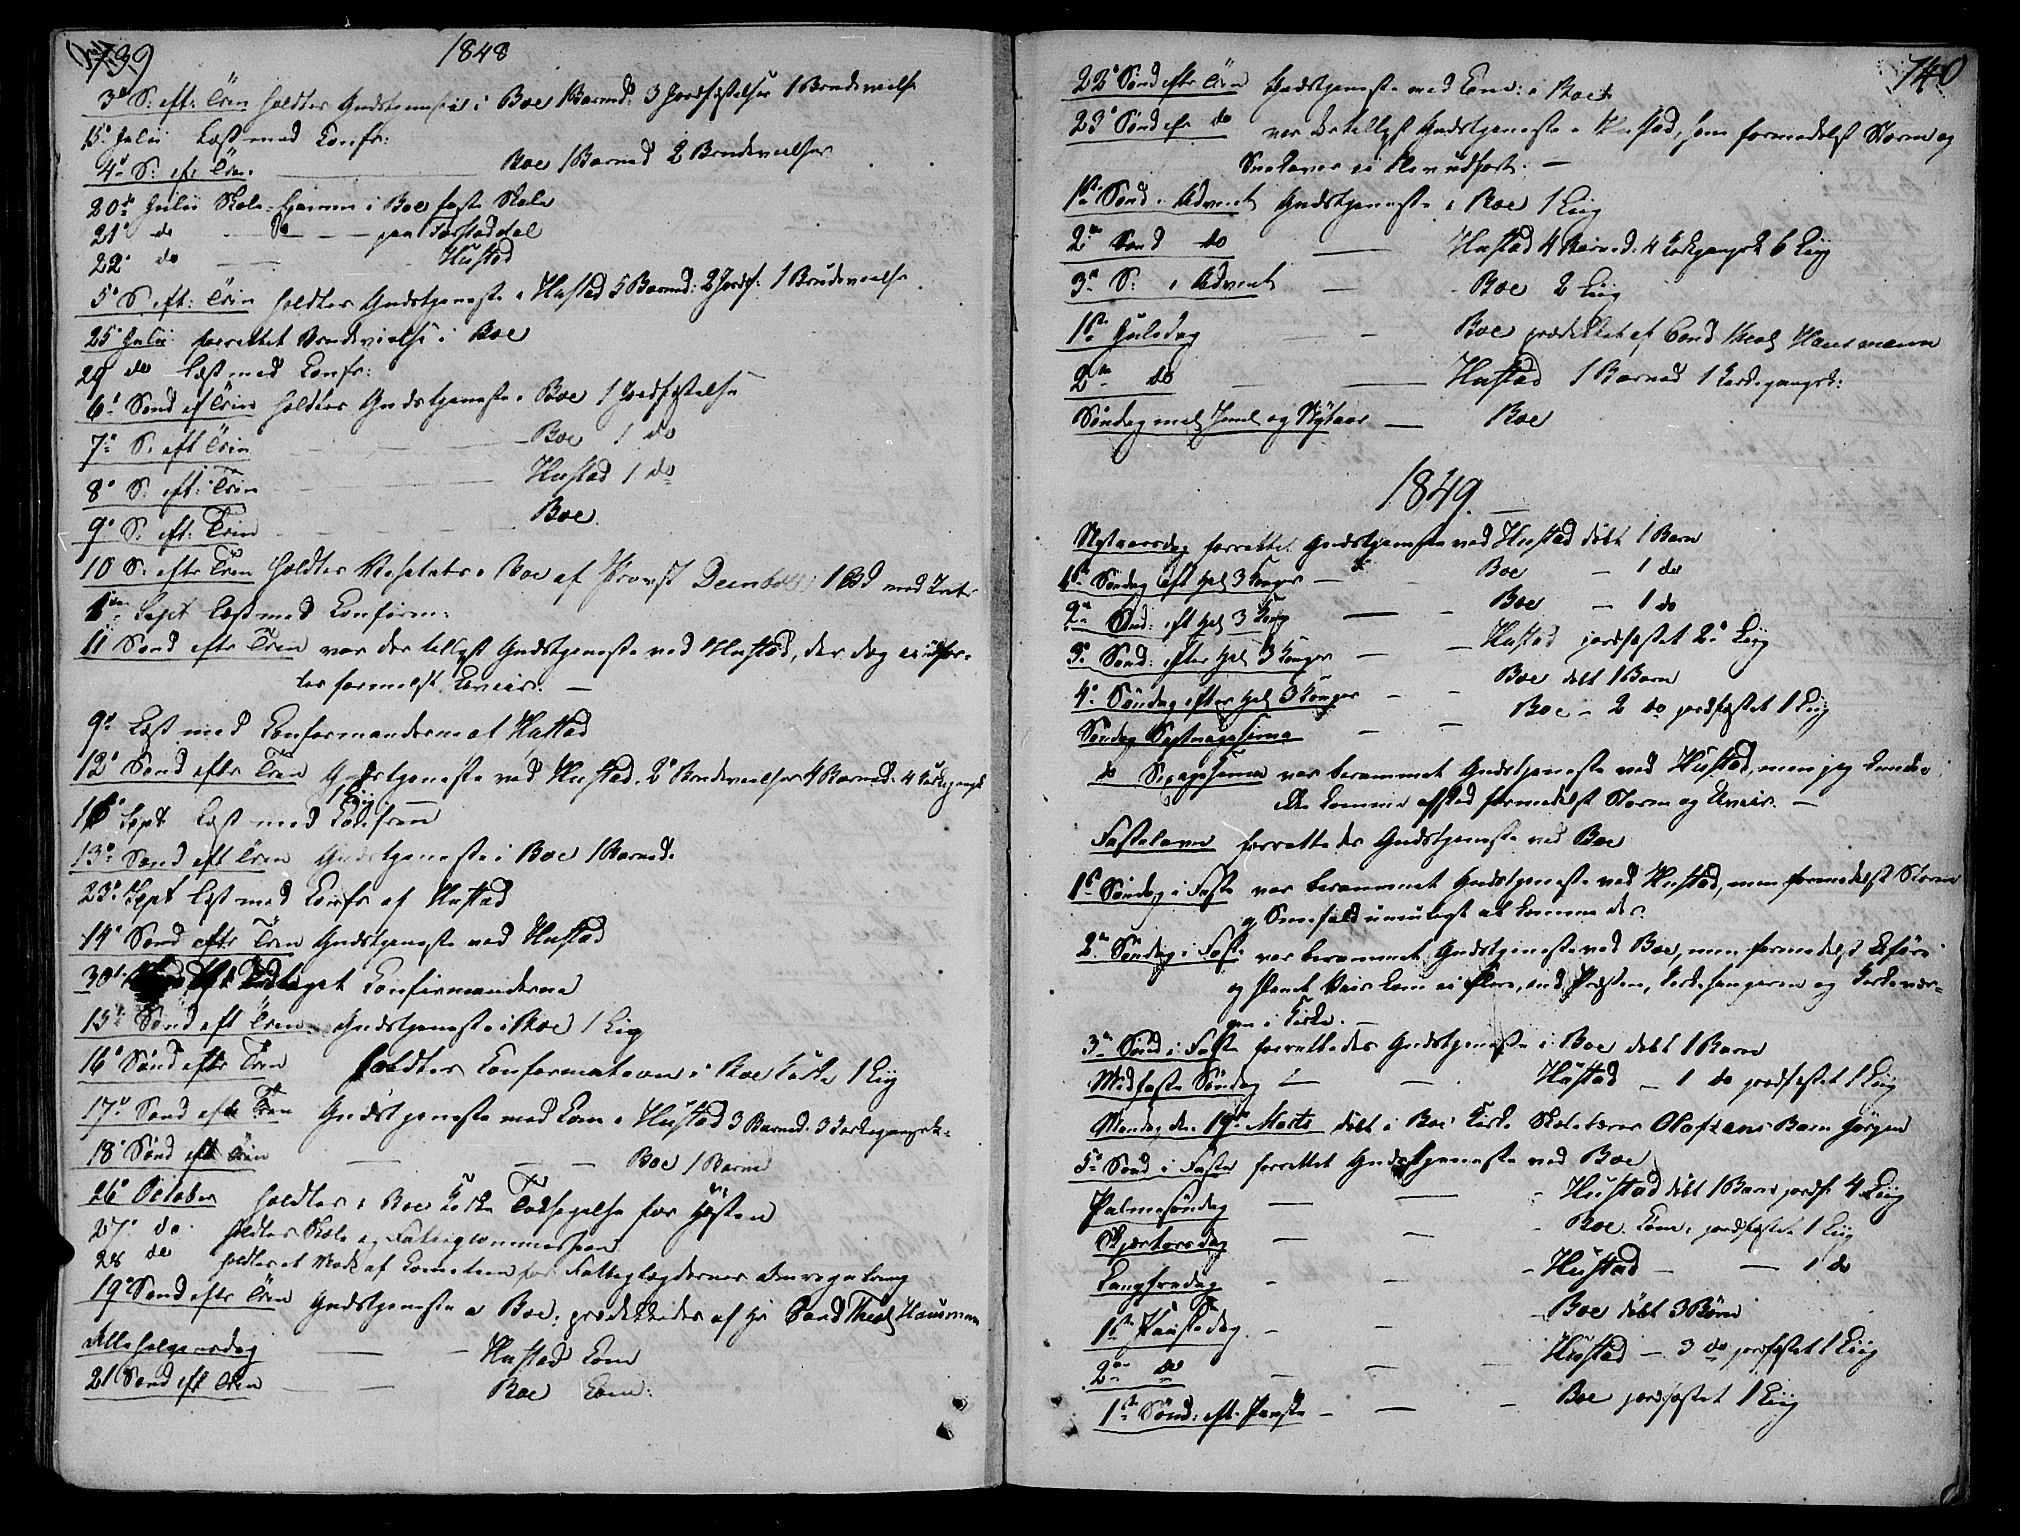 739
1848
3die S: eft: Trin holdtes Gudstjeneste i Boe 1 Barned: 3 Jordfæstelser 1 Brudevielse
15de Julii Læst med Confr:
4de S: eft Trin. Boe 1 Barned 2 Brudevielser
20de Julii Skole Examen i Boe faste Skole
21de do do paa Farstaddal
22de do Hustad
5te S. eft: Trin holdtes Gudstjeneste i Hustad 5 Barned: 2 Jordf: 1 Brudevielse
25de Julii forrettet Brudevielse i Boe
29 do Læst med Confr:
6te Sønd eft Trin holdtes Gudstjeneste i Boe 1 Jordfæstelse
7de S. eft Trin Boe 1 do
8de S: eft: Trin Hustad 1 do
9de S. eft: Trin Boe
10 S. eftr Trin holdtes Visitats i Boe af Provst Deinboll
Sept læst med Confirm:
11 Sønd eftr Trin var der tillyst Gudstjeneste ved Hustad, der dog ei udfør-
tes formedelst Uveir. —
9de Læst med Confirmanderne af Hustad
12te Sønd eftr Trin Gudstjeneste ved Hustad. 2de Brudevielser 4 Barned. 4 Kirkegangsk
1 Liig
Sept Læst med Confirm
13de Sønd eft Trin Gudstjeneste i Boe 1 Barned.
23de Sept læst med Confr af Hustad
14de Sønd eftr Trin Gudstjeneste ved Hustad
30te Confirmanderne
15de Sønd eft Trin. Gudstjeneste i Boe 1 Liig
16de Sønd eftr Trin holdtes Confirmation i Boe Kirke 1 Liig
17de Sønd eftr Trin Gudstjeneste med Com i Hustad 3 Barned. 3 Kirkegangsk.
18de Sønd eft Trin — — Boe 1 Barned
26de October holdtes i Boe Kirke Taksigelse for Høsten
27de do holdtes Skole og Fattigcommission
28 do holdtes et Møde af Comiteen for Fattiglægdernes
19de Sønd eftr Trin Gudstjeneste i Boe, prædikedes af Hr Cand Theol Hausmann
Allehelgensdag — — Hustad Com
21 Sønd eft Trin — — Boe Com:
740
22de Sønd eftr Trin Gudstjeneste med Com: i Boe
23de Sønd eft do var der tillyst Gudstjeneste i Hustad, som formedelst Storm og
ei blev udført. —
1ste Sønd i Advent Gudstjeneste i Boe 1 Liig
2den Sønd do — Hustad 4 Barned: 4 Kirkegangsk 6 Liig
3die S: i Advent — Boe 2 Liig
1ste Juledag — — Boe prædikket af Cand theol Hausmann
2den do — — Hustad 1 Barned 1 Kirkegangsk:
Søndag mel Juul og Nytaar — Boe
1849.
Nytaarsdag forrettet Gudstjeneste ved Hustad døbt 1 Barn
1ste Søndag eft Hel 3 Konger — Boe — 1 do
2den Sønd: eft Hel 3 Kong — — Boe — 1 do
3die Sønd: efter Hel 3 Konger — — Hustad jordfæstet 2de Liig
4de Søndag efter Hel 3 Konger — — Boe døbt 1 Barn
Søndag Septuagesima — — Boe — 2 do jordfæstet 1 Liig
do Sexagesima var berammet Gudstjeneste ved Hustad, men jeg kunde
ikke komme afsted formedelst Storm og Uveir. —
Fastelavn forrettedes Gudstjeneste ved Boe
1ste Søndag i Faste var berammet Gudstjeneste ved Hustad, men formedelst Storm
og Sneefald umuligt at komme der.
2den Søndag i Faste var berammet Gudstjeneste ved Boe, men formedelst Uføre
og slemt Veir kom ei flere, end Præsten, Kirkesangeren og Kirkevær-
gen i Kirke. —
3die Sønd i Faste forrettedes Gudstjeneste i Boe døbt 1 Barn
Midfaste Søndag — — Hustad — 1 do jordfæstet 1 Liig
Mandag den 19de Marts døbt i Boe Kirke Skolelærer Olafsens Barn Jørgen
5te Sønd i Faste forrettet Gudstjeneste ved Boe
Palmesøndag — — Hustad døbt 1 Barn jordf: 4 Liig
Skjærtorsdag — — Boe Com: jordfæstet 1 Liig
Langfredag — — Hustad — — 1 do
1ste Paaskedag. — — Boe døbt 3 Børn
2den do — — Hustad — 3 do jordfæstet 1 Liig
1ste Sønd: eft. Paaske — — Boe jordfæstet 1 Liig